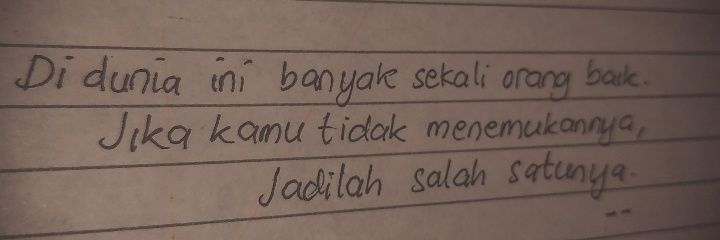 Di dunia ini banyak sekali orang baik.
Jika kamu tidak menemukannya,
Jadilah salah satunya.
--